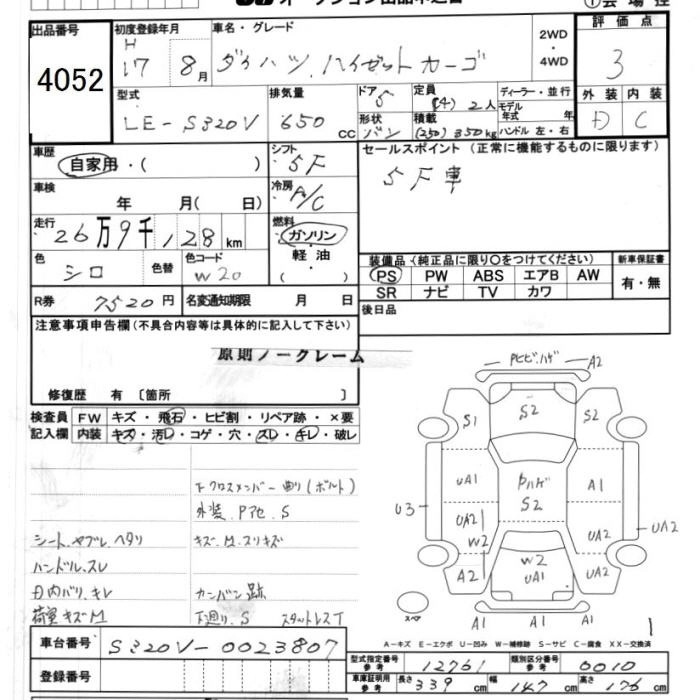 オークション出品申込書
会場控
出品番号 4052
初度登録年月 H 17 8月
車名・グレード ダイハツ ハイゼットカーゴ
2WD・4WD
評価点 3
外装 D 内装 C
型式 LE-S320V
排気量 650cc
ドア 5
形状 バン
定員 (4) 2人
積載 (250) 350kg
ディーラー・並行
モデル年式 年
ハンドル 左・右
車歴 自家用・( )
シフト 5F
セールスポイント(正常に機能するものに限ります)
5F車
車検 年 月( 日)
冷房 A/C
走行 26万9千128km
燃料 ガソリン・軽油・( )
色 シロ 色替 色コード W20
装備品(純正品に限り○をつけてください)
PS PW ABS エアB AW
SR ナビ TV カワ
新車保証書 有・無
R券 7520円 名変通知期限 月 日
後日品
注意事項申告欄(不具合内容等は具体的に記入して下さい)
原則ノークレーム
修復歴 有〔箇所 〕
検査員記入欄
FW キズ・飛石・ヒビ割・リペア跡・×要
内装 キズ・汚レ・コゲ・穴・スレ・キレ・破レ
下クロスメンバー曲り(ボルト)
外装.Pアセ.S
シート.ヤブレ.ヘタリ キズ.M.スリキズ
ハンドル.スレ
D内バリ.キレ カンバン跡
荷室キズM 下廻り.S スタットレスT
Pヒビ.ハゲ A2
S1 S2 S2
UA1 Pハゲ A1
S2
U3 UA2 W2 UA2 UA2
A2 W2 UA1 UA2
スペア A1 A1 A1
1
A-キズ E-エクボ U-凹み W-補修跡 S-サビ C-腐食 XX-交換済
車台番号 S320V-0023807
登録番号
型式指定番号 参考 12761 類別区分番号 参考 0010
車庫証明用 参考 長さ 339cm 幅 147cm 高さ 176cm